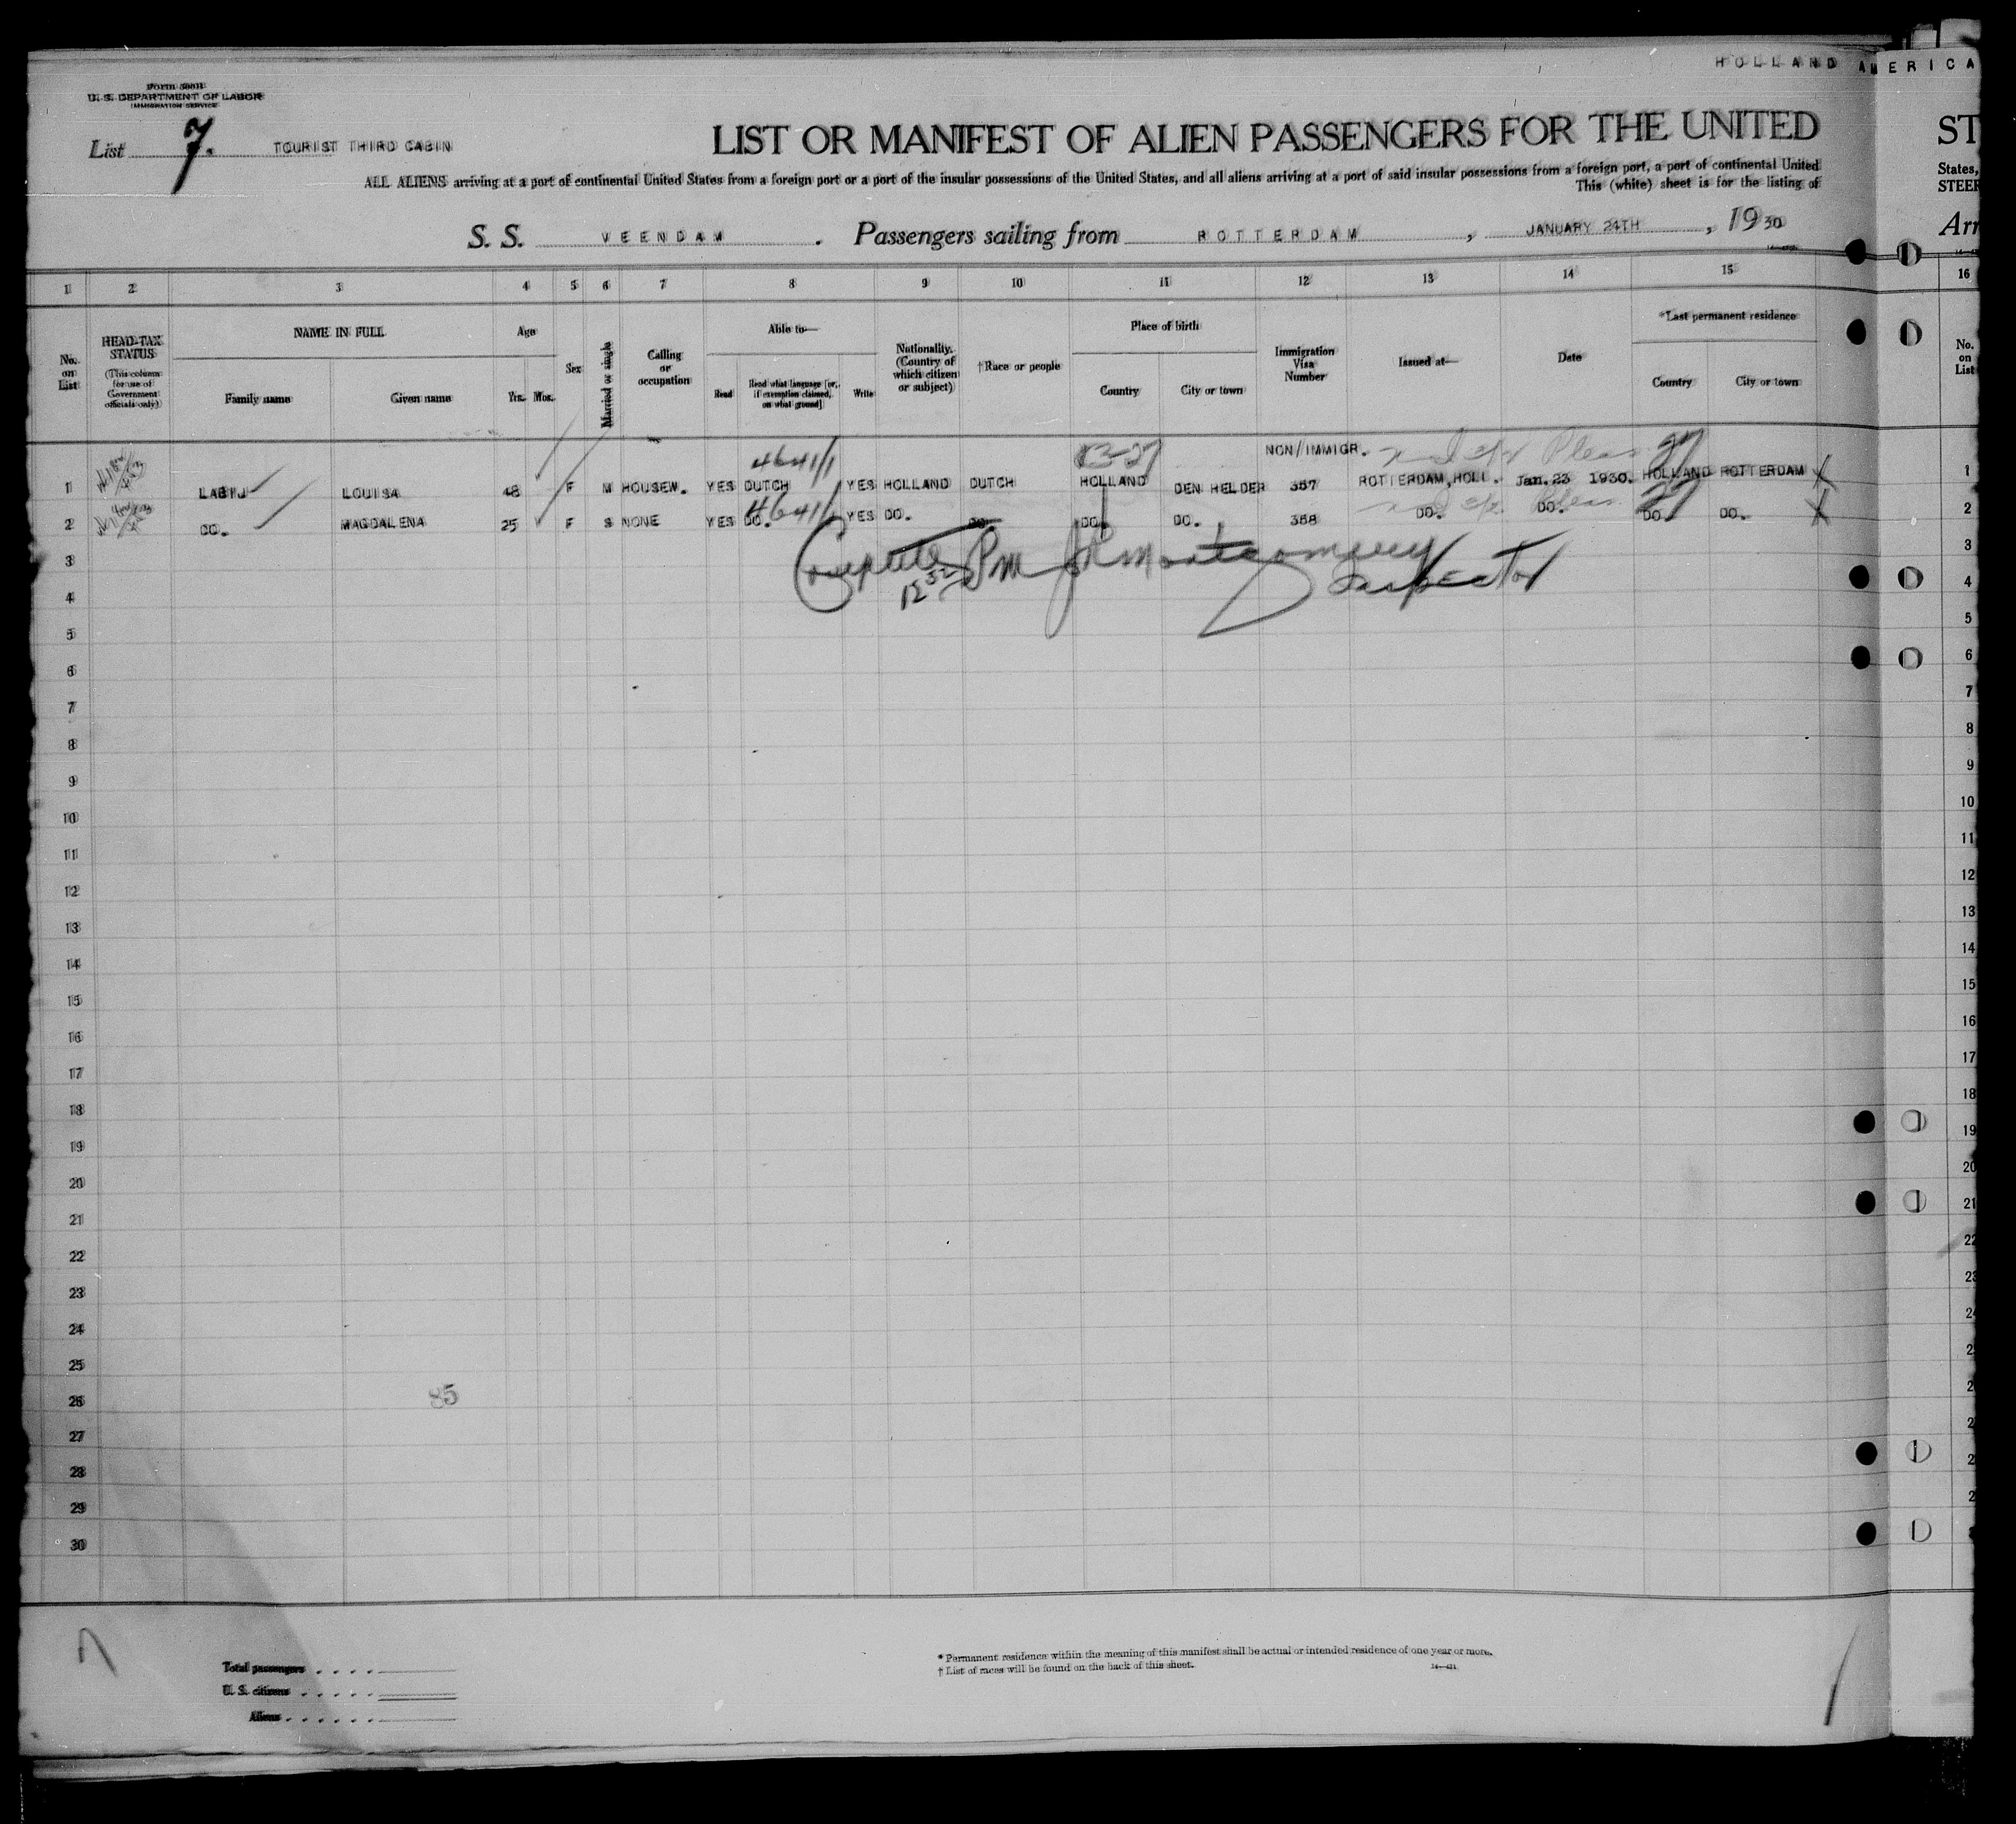 HOLLAND AMERICA
Form 500B
U. S. DEPARTMENT OF LABOR
IMMIGRATION SERVICE
List 7. TOURIST THIRD CABIN
LIST OR MANIFEST OF ALIEN PASSENGERS FOR THE UNITED ST
ALL ALIENS arriving at a port of continental United States from a foreign port or a port of the insular possessions of the United States, and all aliens arriving at a port of said insular possessions from a foreign port, a port of continental United States,
This (white) sheet is for the listing of STEER
S. S. VEENDAM . Passengers sailing from ROTTERDAM , JANUARY 24TH , 1930 Arr
1 2 3 4 5 6 7 8 9 10 11 12 13 14 15 16
No. on List
HEAD-TAX STATUS
(This column for use of Government officials only)
NAME IN FULL
Family name
Given name
Age
Yrs. Mos.
Sex
Married or single
Calling or occupation
Able to—
Read
Read what language [or, if exemption claimed, on what ground]
Write
Nationality. (Country of which citizen or subject)
†Race or people
Place of birth
Country
City or town
Immigration Visa Number
Issued at—
Date
*Last permanent residence
Country
City or town
No. on List
4641/1 NON/IMMIGR. 27
1 LABIJ LOUISA 48 F M HOUSEW. YES DUTCH YES HOLLAND DUTCH HOLLAND DEN HELDER 357 ROTTERDAM, HOLL. Jan. 23 1930. HOLLAND ROTTERDAM X 1
4641/1 27
2 DO. MAGDALENA 25 F S NONE YES DO. YES DO. DO. DO. DO. 358 DO. DO. DO. DO. X 2
Complete Pm JR Montgomery
12 32 Inspector
3 3
4 4
5 5
6 6
7 7
8 8
9 9
10 10
11 11
12 12
13 13
14 14
15 15
16 16
17 17
18 18
19 19
20 20
21 21
22 22
23 23
24 2
25 2
26 85 2
27 2
28 2
29 2
30
Total passengers
U. S. citizens
Aliens
* Permanent residence within the meaning of this manifest shall be actual or intended residence of one year or more.
† List of races will be found on the back of this sheet.